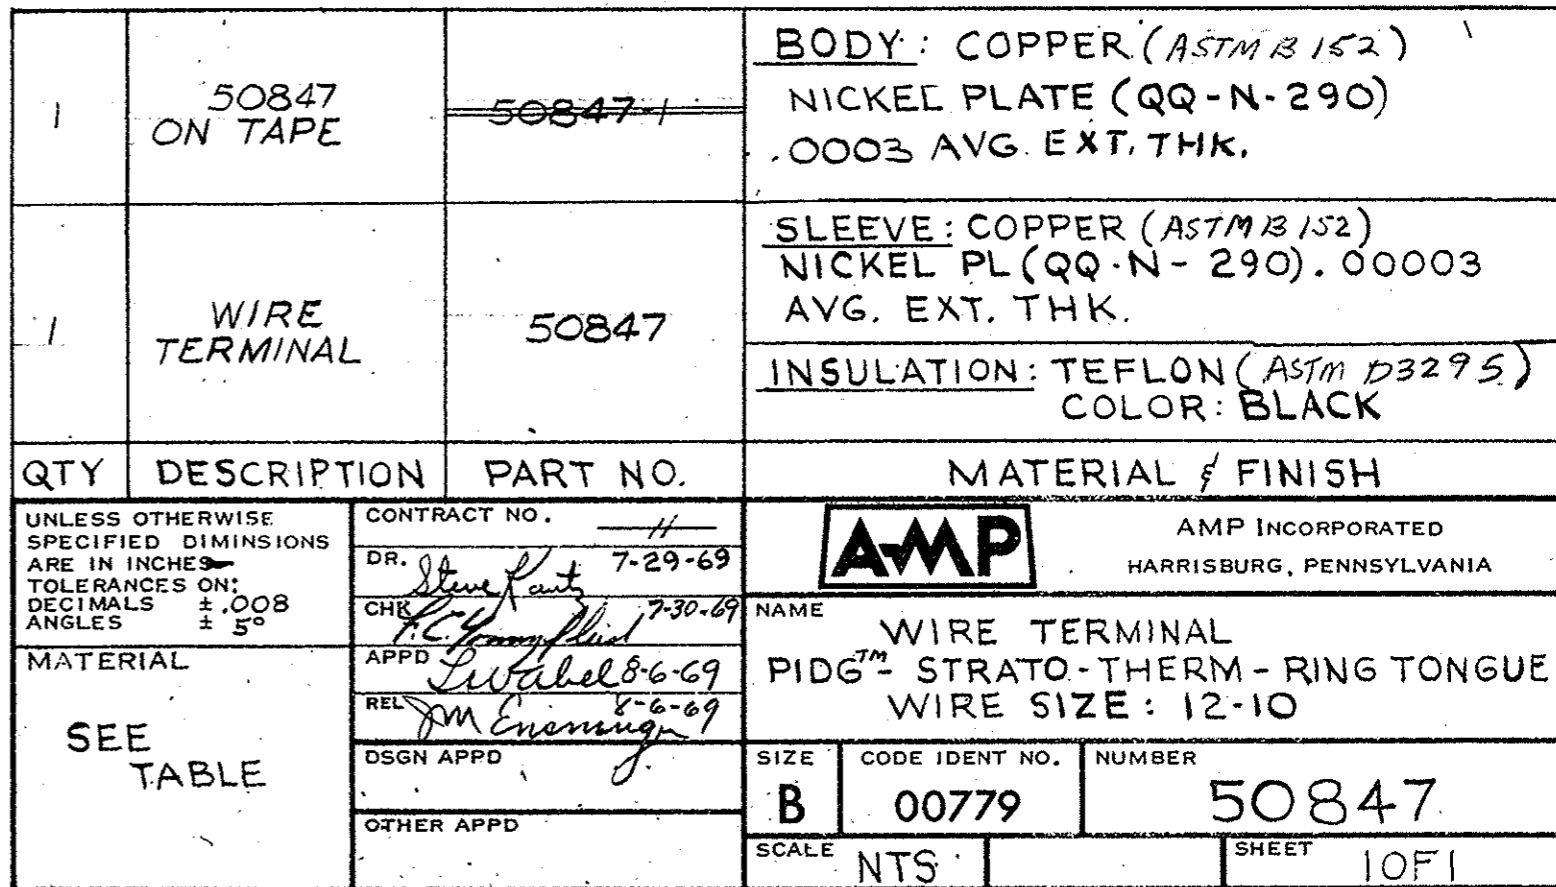 1
50847
ON TAPE
50847-1
BODY: COPPER (ASTM B 152)
NICKEL PLATE (QQ-N-290)
.0003 AVG. EXT. THK.
1
WIRE
TERMINAL
50847
SLEEVE: COPPER (ASTM B 152)
NICKEL PL (QQ-N-290). 00003
AVG. EXT. THK.
INSULATION: TEFLON (ASTM D3295)
COLOR: BLACK
QTY DESCRIPTION PART NO. MATERIAL & FINISH
UNLESS OTHERWISE
SPECIFIED DIMINSIONS
ARE IN INCHES
TOLERANCES ON:
DECIMALS ± .008
ANGLES ± 5°
MATERIAL
SEE
TABLE
CONTRACT NO.
DR. Steve 7-29-69
CHK 7-30-69
APPD 8-6-69
REL JM 8-6-69
DSGN APPD
OTHER APPD
AMP
AMP INCORPORATED
HARRISBURG, PENNSYLVANIA
NAME
WIRE TERMINAL
PIDG™- STRATO-THERM-RING TONGUE
WIRE SIZE: 12-10
SIZE
B
CODE IDENT NO.
00779
NUMBER
50847
SCALE NTS
SHEET 1 OF 1